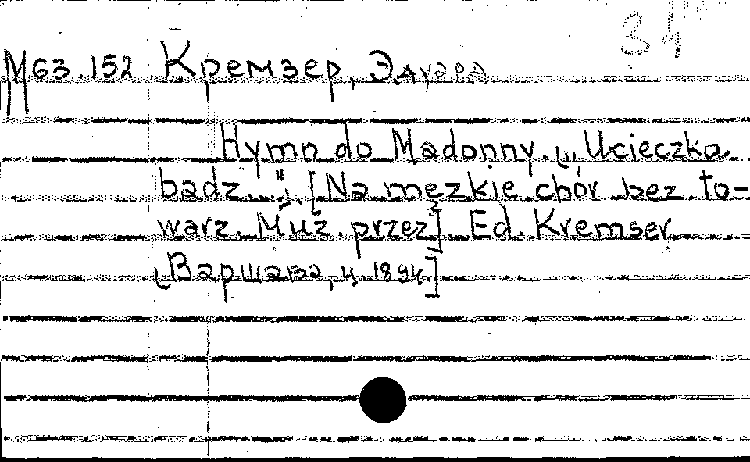 34
М63.152 Кремзер, Эдуард
Hymn do Madonny. „Ucieczka
bądz..."; [Na męzkie chór bez to-
warz. Muz. przez] Ed. Kremser
[Варшава, ц. 1894]